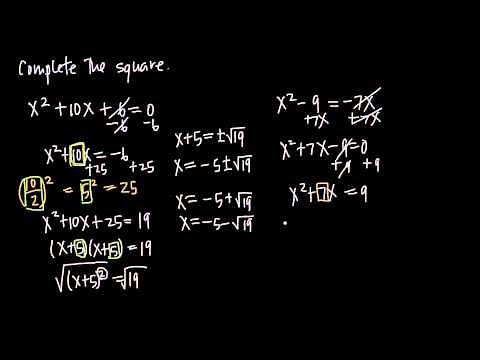 Complete the square.
x² + 10x + 6 = 0
-6 -6
x² + 10x = -6
+25 +25
(10/2)² = 5² = 25
x² + 10x + 25 = 19
(x+5)(x+5) = 19
√(x+5)² = √19
x+5 = ±√19
x = -5 ± √19
x = -5 + √19
x = -5 - √19
x² - 9 = -7x
+7x +7x
x² + 7x - 9 = 0
+9 +9
x² + 7x = 9